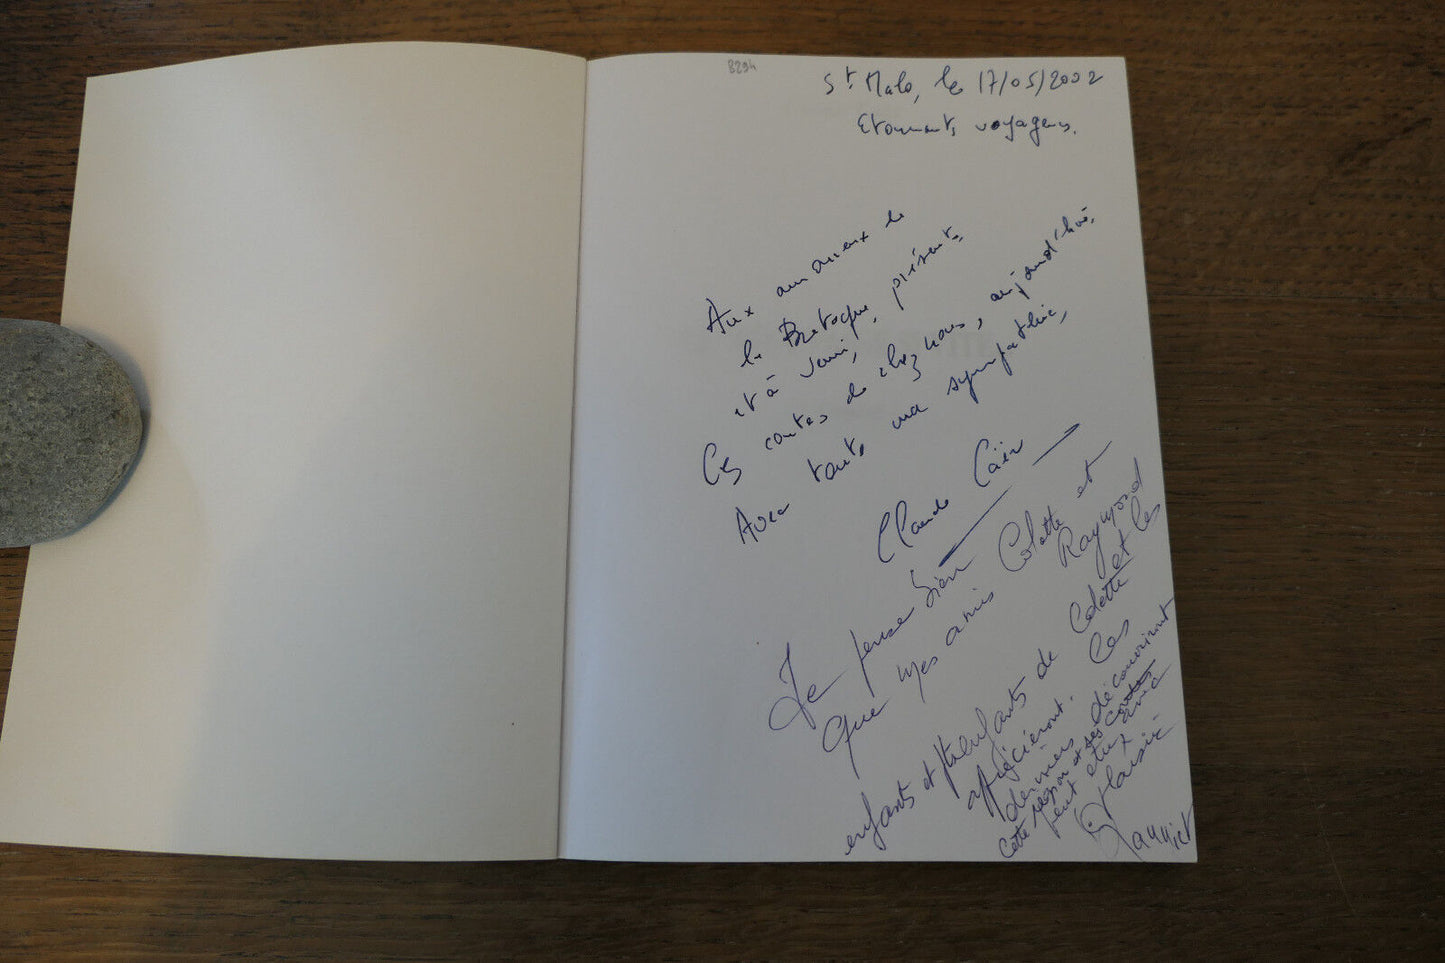 8294
St Malo, le 17/05/2002
Etonnants voyageurs.
Aux amoureux de
la Bretagne, présents
et à venir,
Ces contes de chez nous, aujourd'hui,
Avec toute ma sympathie,
Claude Caër
Je pense bien
que mes amis Colette et Raymond
apprécieront.
enfants et p'tits enfants de Colette et les
derniers découvriront
Cette région et ses contes
peut etre avec
plaisir